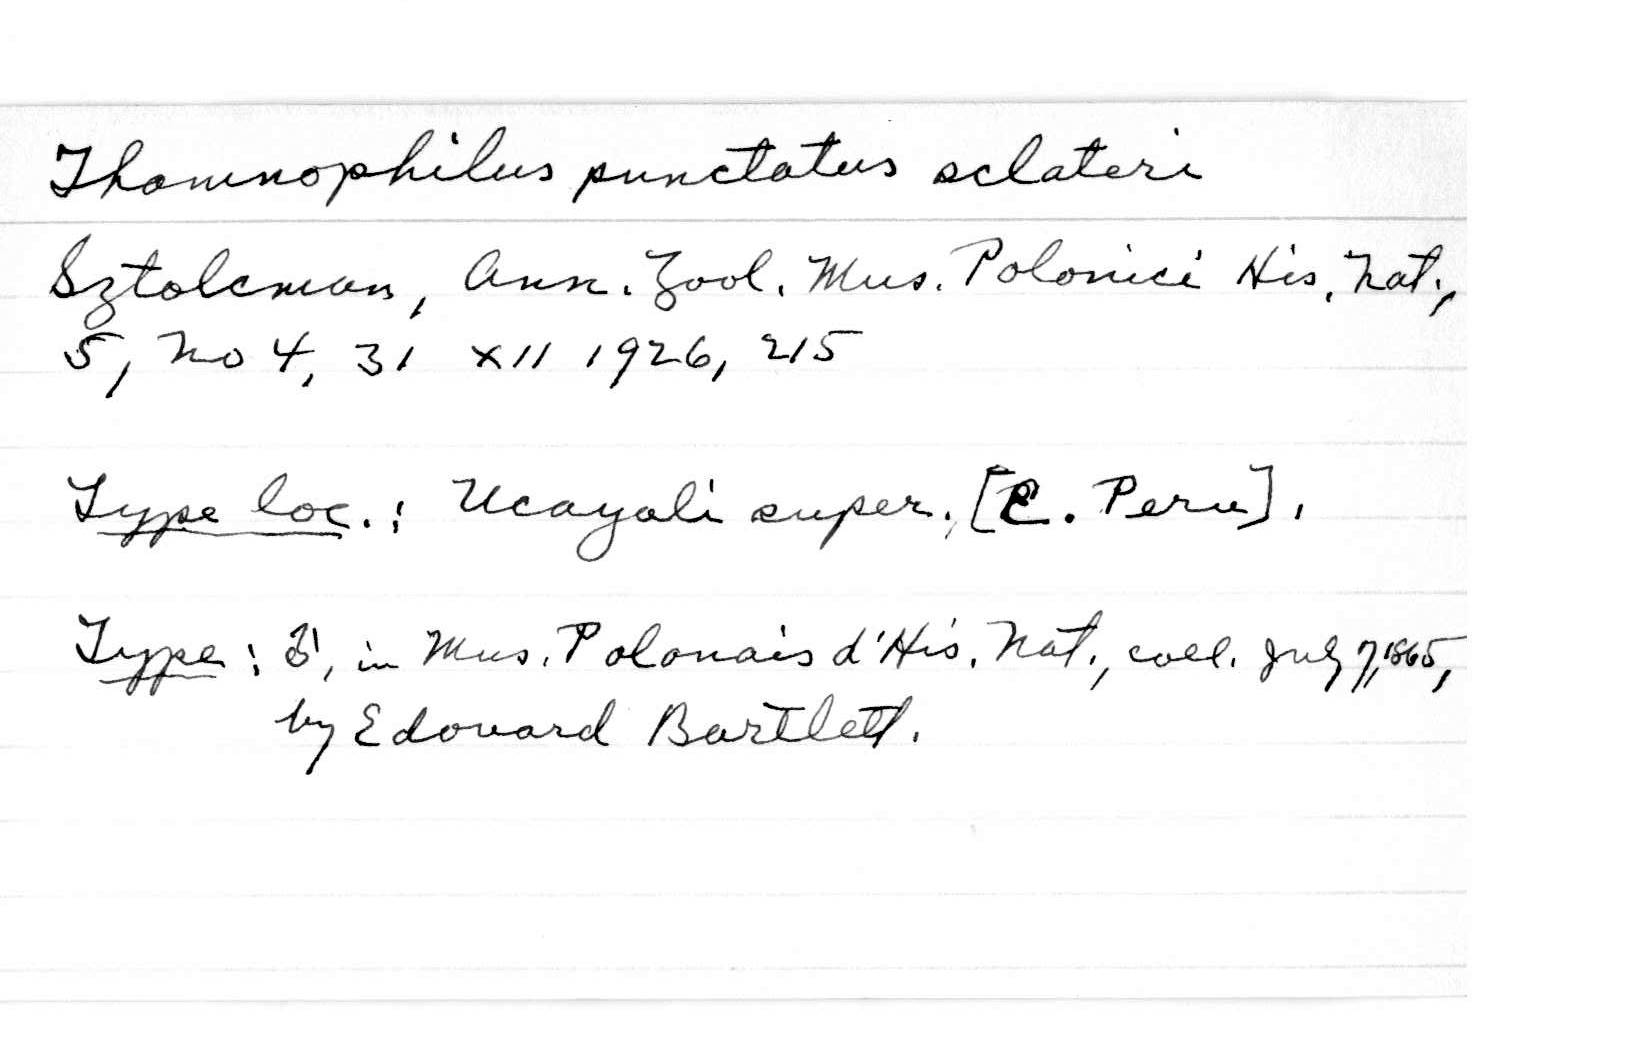 Thamnophilus punctatus sclateri
Sztolcman, Ann. Zool. Mus. Polonici His. Nat.,
5, no 4, 31 XII 1926, 215
Type loc.: Ucayali super. [E. Peru].
Type: ♂, in Mus. Polonais d'His. Nat., coll. July 7, 1865,
by Edouard Bartlett.